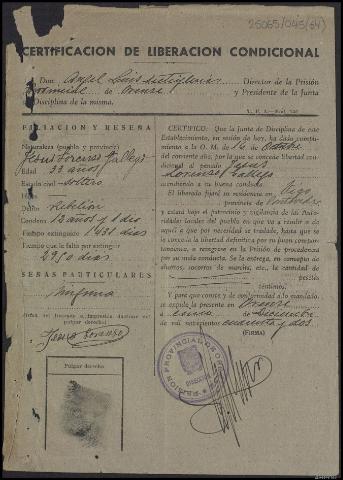 25065/045(54)
CERTIFICACION DE LIBERACION CONDICIONAL
Don Angel Luis Director de la Prisión
Provincial de Orense y Presidente de la Junta
de Disciplina de la misma.
FILIACION Y RESEÑA
Naturaleza (pueblo y provincia)
Jesus Lorenzo Gallego
Edad 33 años
Estado civil soltero
Hijo
Delito Rebelión
Condena 12 años y 1 dia
Tiempo extinguido 1431 dias
Tiempo que le falta por extinguir
2950 dias
SEÑAS PARTICULARES
Ninguna
(Firma del liberado e impresión dactilar del
pulgar derecho)
Jesus Lorenzo
Pulgar derecho
CERTIFICO: Que la Junta de Disciplina de este
Establecimiento, en sesión de hoy, ha dado cumplimiento
a la O. M. de 16 de Octubre
del corriente año, por la que se concede libertad condicional
al penado Jesus
Lorenzo Gallego
atendiendo a su buena conducta.
El liberado fijará su residencia en Vigo
provincia de Pontevedra
y estará bajo el patronato y vigilancia de las Autoridades
locales del pueblo en que va a residir o de
aquél a que por necesidad se traslade, hasta que
se le conceda la libertad definitiva por su justo comportamiento,
o reingrese en la Prisión de procedencia
por su mala conducta. Se le entrega, en concepto de
ahorros, socorros de marcha, etc., la cantidad de
pesetas
céntimos.
Y para que conste y de conformidad a lo mandado,
se expide la presente en Orense
a cinco de Diciembre
de mil novecientos cuarenta y dos
(FIRMA)
PRISION PROVINCIAL